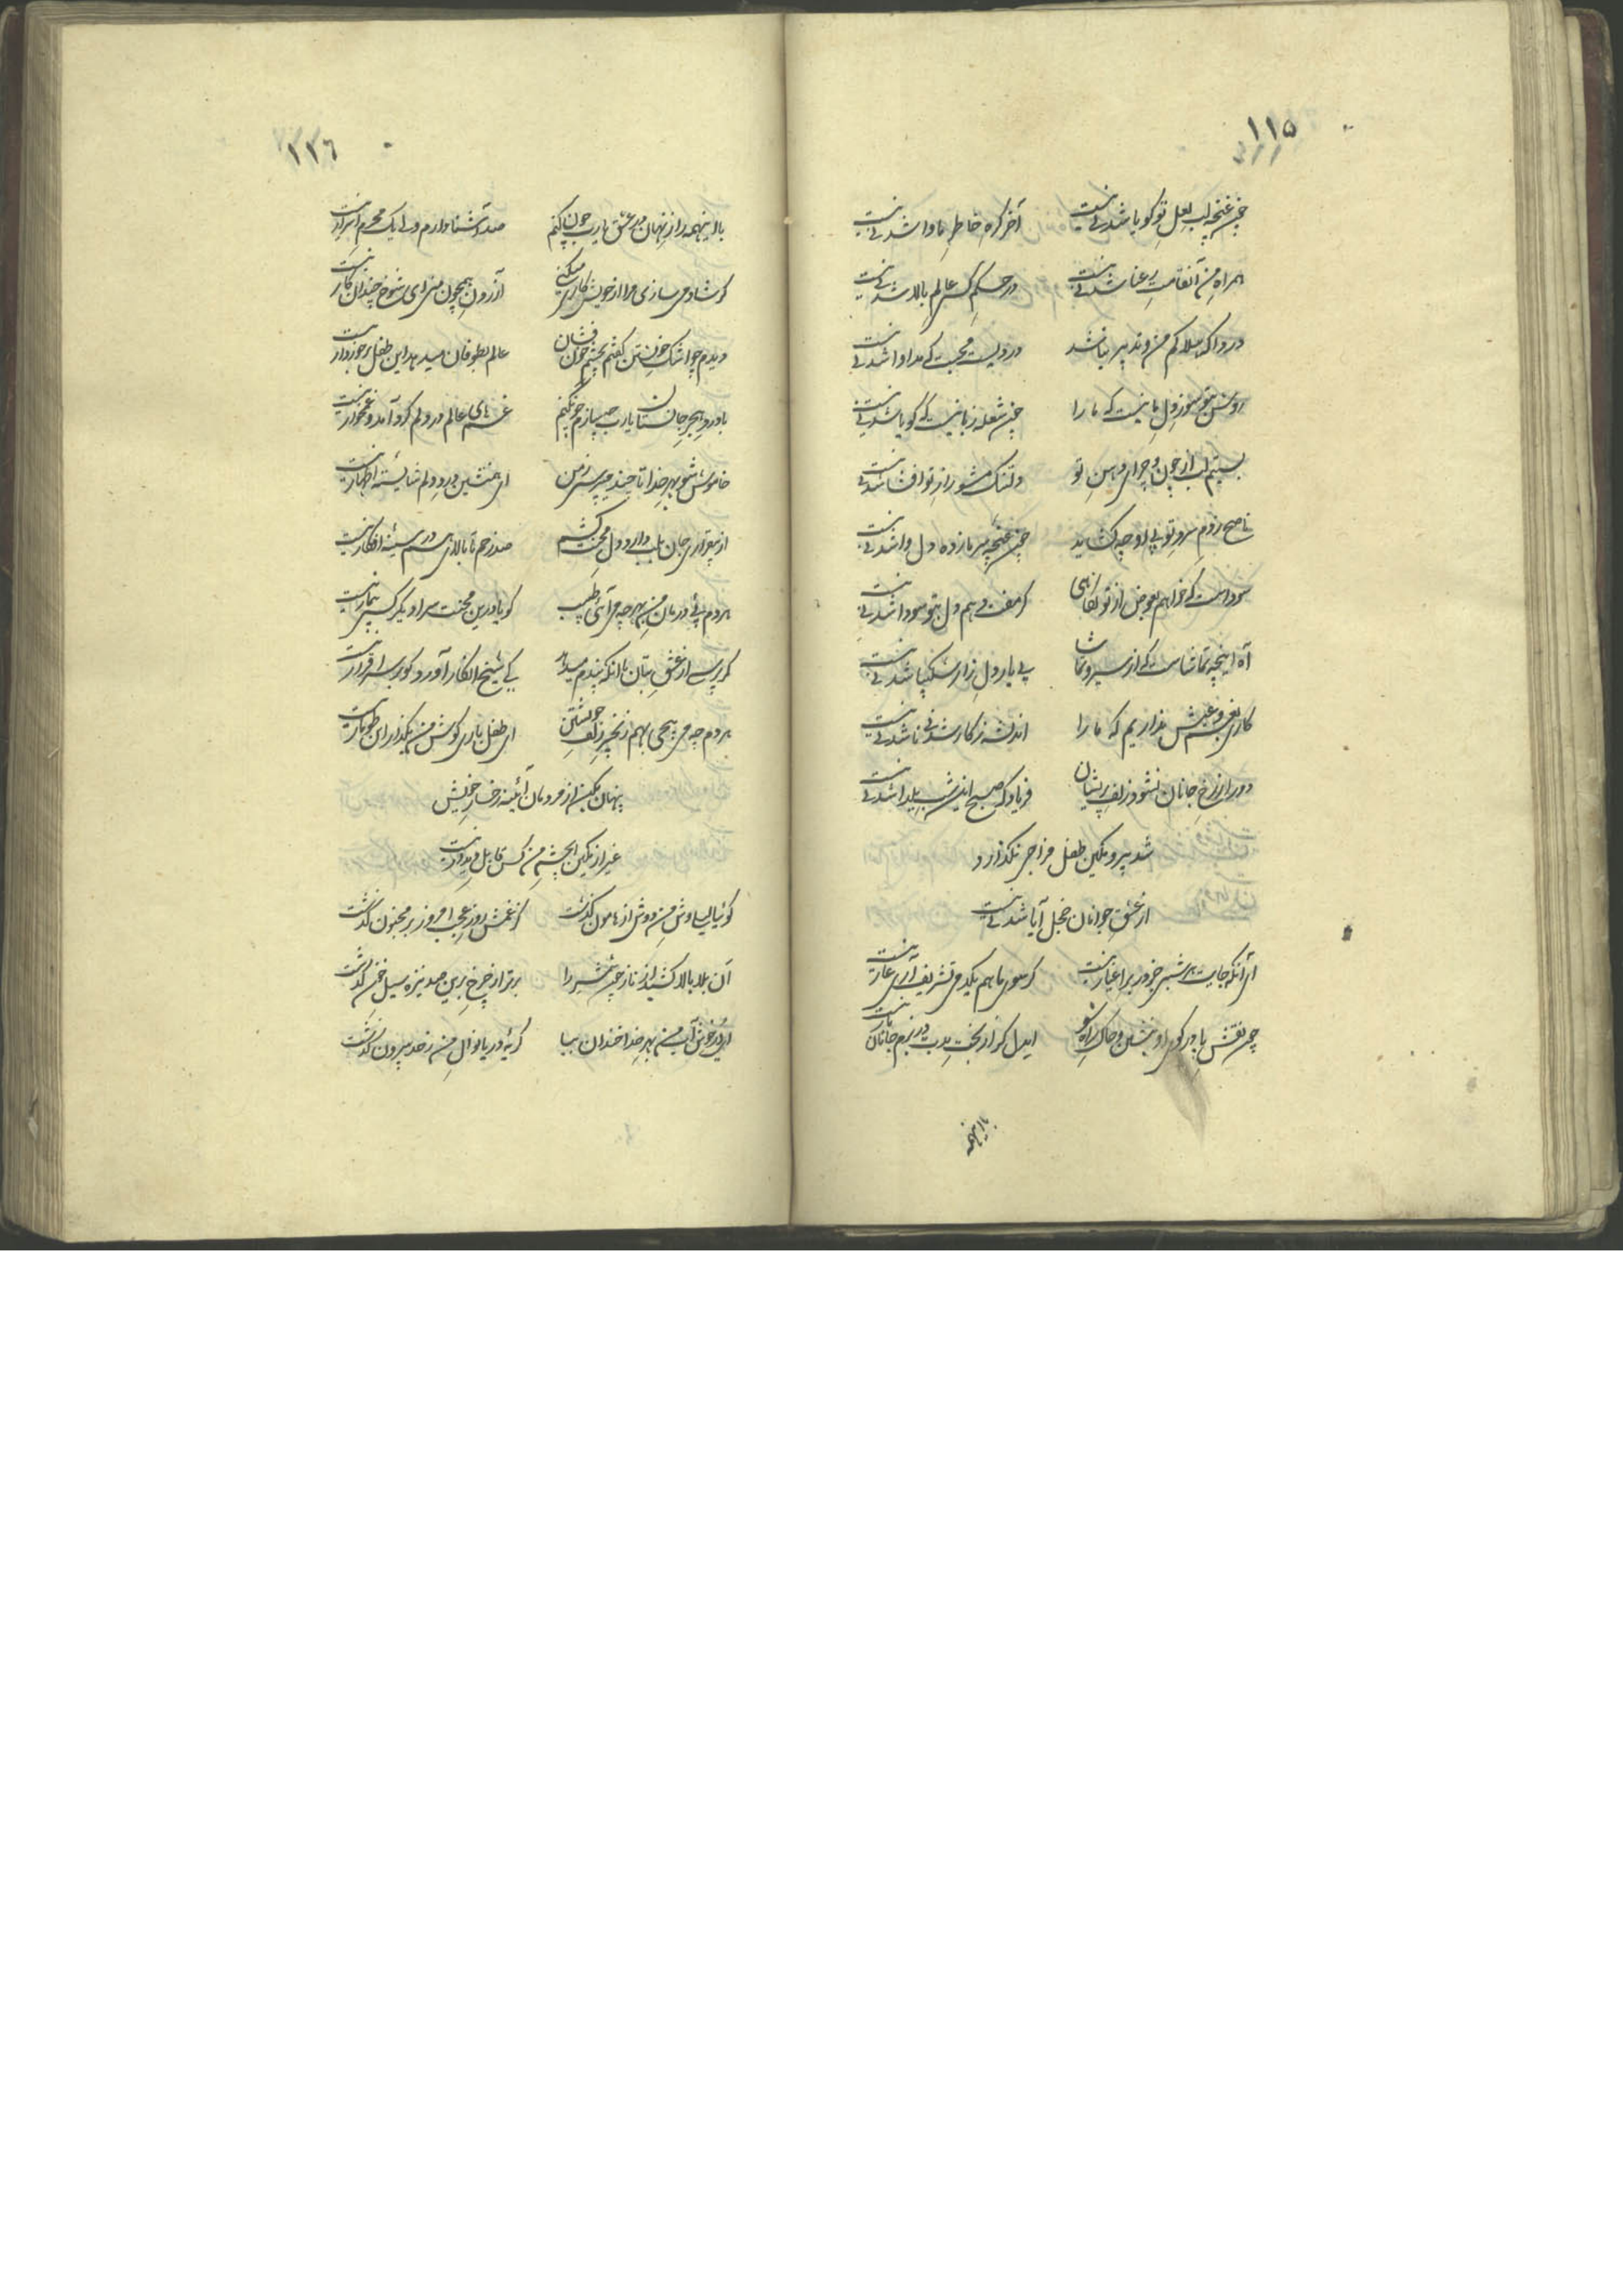 ۱۱۵
چون غنچه لب لعل تو گویا شدنی نیست آخر گره خاطر ما وا شدنی نیست
همراه من آنقامت رعنا شدنی نیست در حکم کس عالم بالا شدنی نیست
دردا که هلاکم من و تدبیر نباشد دردیست محبت که مداوا شدنی نیست
روشن بتو سوز دل ما نیست که ما را چون شعله زبانیست که گویا شدنی نیست
بستیم لب از چون و چرای دهن تو دلتنک مشو راز تو افشا شدنی نیست
ناصح ز دم سرد تو بی او چه کشاید چون غنچه پژمرده دل وا شدنی نیست
سوداست که خواهم بعوض از تو نکاهی کر مفت دهم دل بتو سودا شدنی نیست
آه اینچه تماشاست که از سیر و تماشا بی یار دل زار شکیبا شدنی نیست
کاری بغم و عیش نداریم که ما را اندیشه ز کار شدنی ناشدنی نیست
دور از رخ جانان نشود زلف پریشان فریاد که صبح اینشب یلدا شدنی نیست
شد پیر و نکین طفل مزاجی نکذارد
از عشق جوانان خجل آیا شدنی نیست
ای آنکه جایت هر شبی جز در بر اغیار نیست کر سوی ما هم یکدمی تشریف آری عار نیست
چون نقش پا در کوی او بنشین و خاک راه شو ایدل کر از بخت بدت در بزم جانان بار نیست
با اینهمه
۱۱۶
با اینهمه راز نهان در عشق یارب چون کنم صد آشنا دارم ولی یک محرم اسرار نیست
کر شاد می سازی مرا از خویش کاری میکنی آزردن همچون منی ای شوخ چندان کار نیست
دیدم چو اشک خویشتن کفتم بچشم خون فشان عالم بطوفان میدهد این طفل برخوردار نیست
با درد هجر جان ستان یارب چه سازم چون کنم غمهای عالم در دلم کرد آمد و غمخوار نیست
خاموش شو بهر خدا تا چند میپرسی ز من ای همنشین درد دلم شایسته اظهار نیست
از بیقراری جان بلب دارد دل محنت کشم صد زخم تا بالای هم در سینه افکار نیست
هر دم پی درمان من بهر چه می آئی طبیب کویا درین محنت سرا دیکر کسی بیمار نیست
کر پرسی از عشق بتان با آنکه پندم میدهد کی شیخ انکار آورد کورا بسر اقرار نیست
هر دم چه می پیچی بهم زنجیر زلف خویشتن ای طفل بازی کوش من بکذار این طومار نیست
پنهان مکن از مردمان آئینه رخسار خویش
غیر از نکین ای چشم من کس قابل دیدار نیست
کوئیا لیلی وش من دوش از هامون کذشت کز غمش روز عجب امروز بر مجنون کذشت
آن بلا بالا کشید از ناز چون شمشیر را برتر از چرخ برین صد نیزه سیل خون کذشت
ای در خوش آب من بهر خدا خندان بیا کریه دریا نوال من ز حد بیرون کذشت